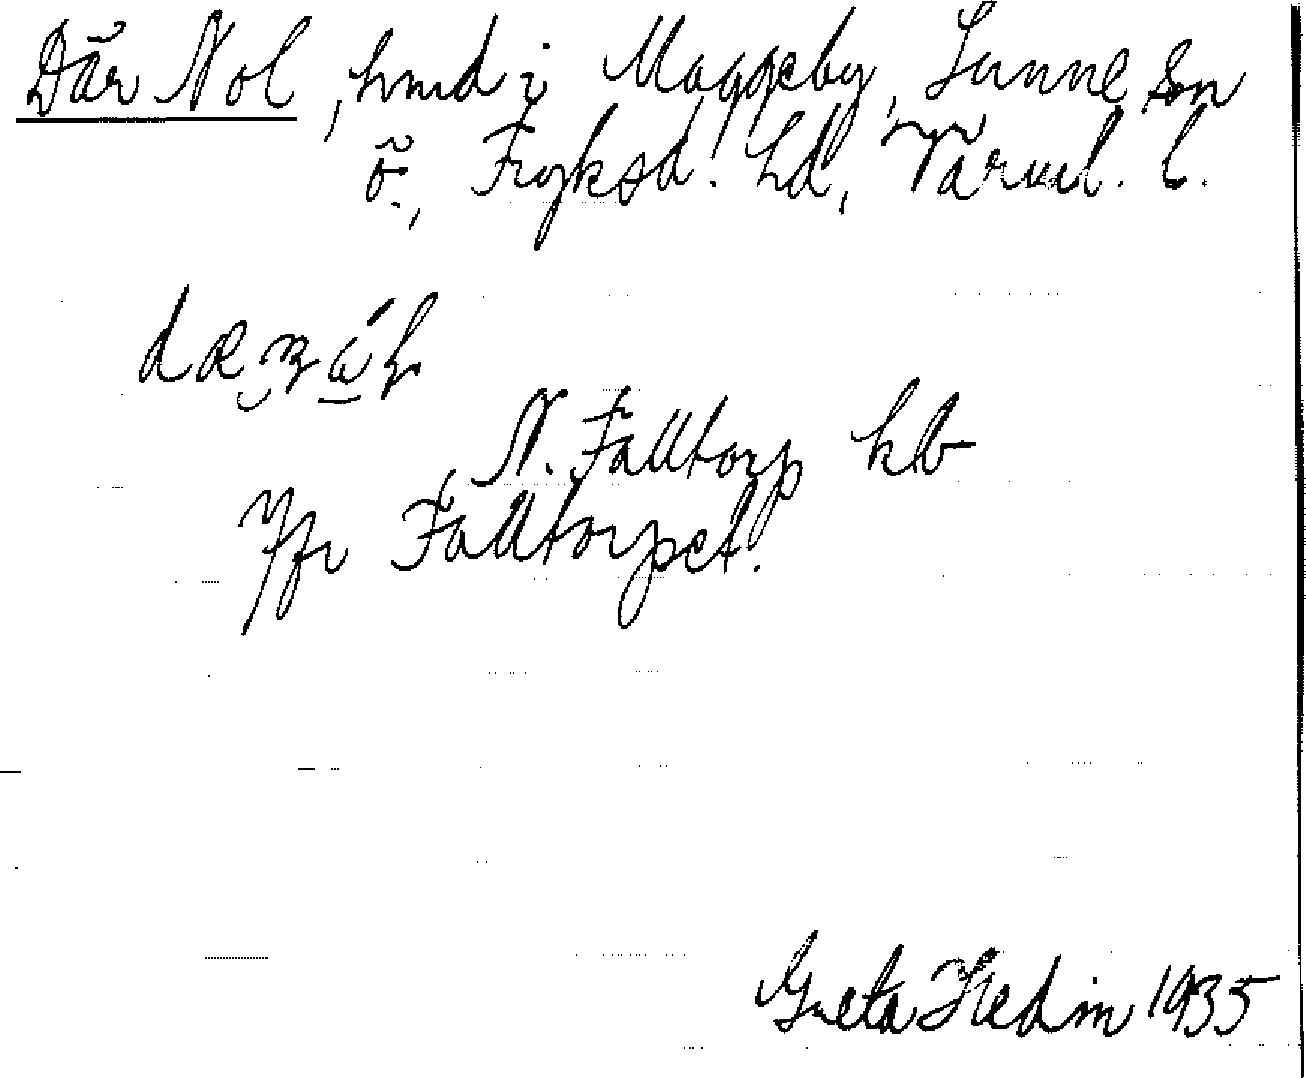 Där Nol, hmd i Maggeby, Sunne sn
ö., Fryksd. hd, Värml. l.
N. Falltorp kb
Jfr Falltorpet.
Greta Hedin 1935